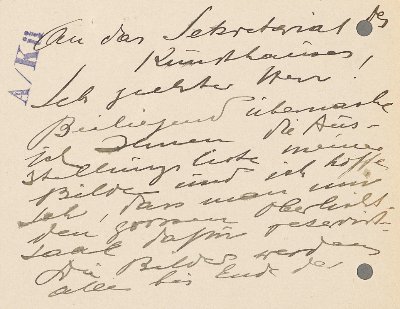 A/Kü
An das Sekretariat des
Kunsthauses,
geehrter Herr!
Beiliegend übermache
ich Ihnen die Aus-
stellungsliste meiner
Bilder und ich hoffe
dass man mir
den grossen Oberlicht-
saal dafür reservirt.
Die Bilder werden
alles bis Ende der